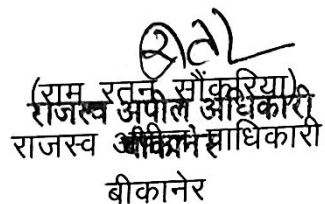 (राम रतन सौंकरिया)
राजस्व अपील अधिकारी
बीकानेर
राजस्व अपील प्राधिकारी
बीकानेर